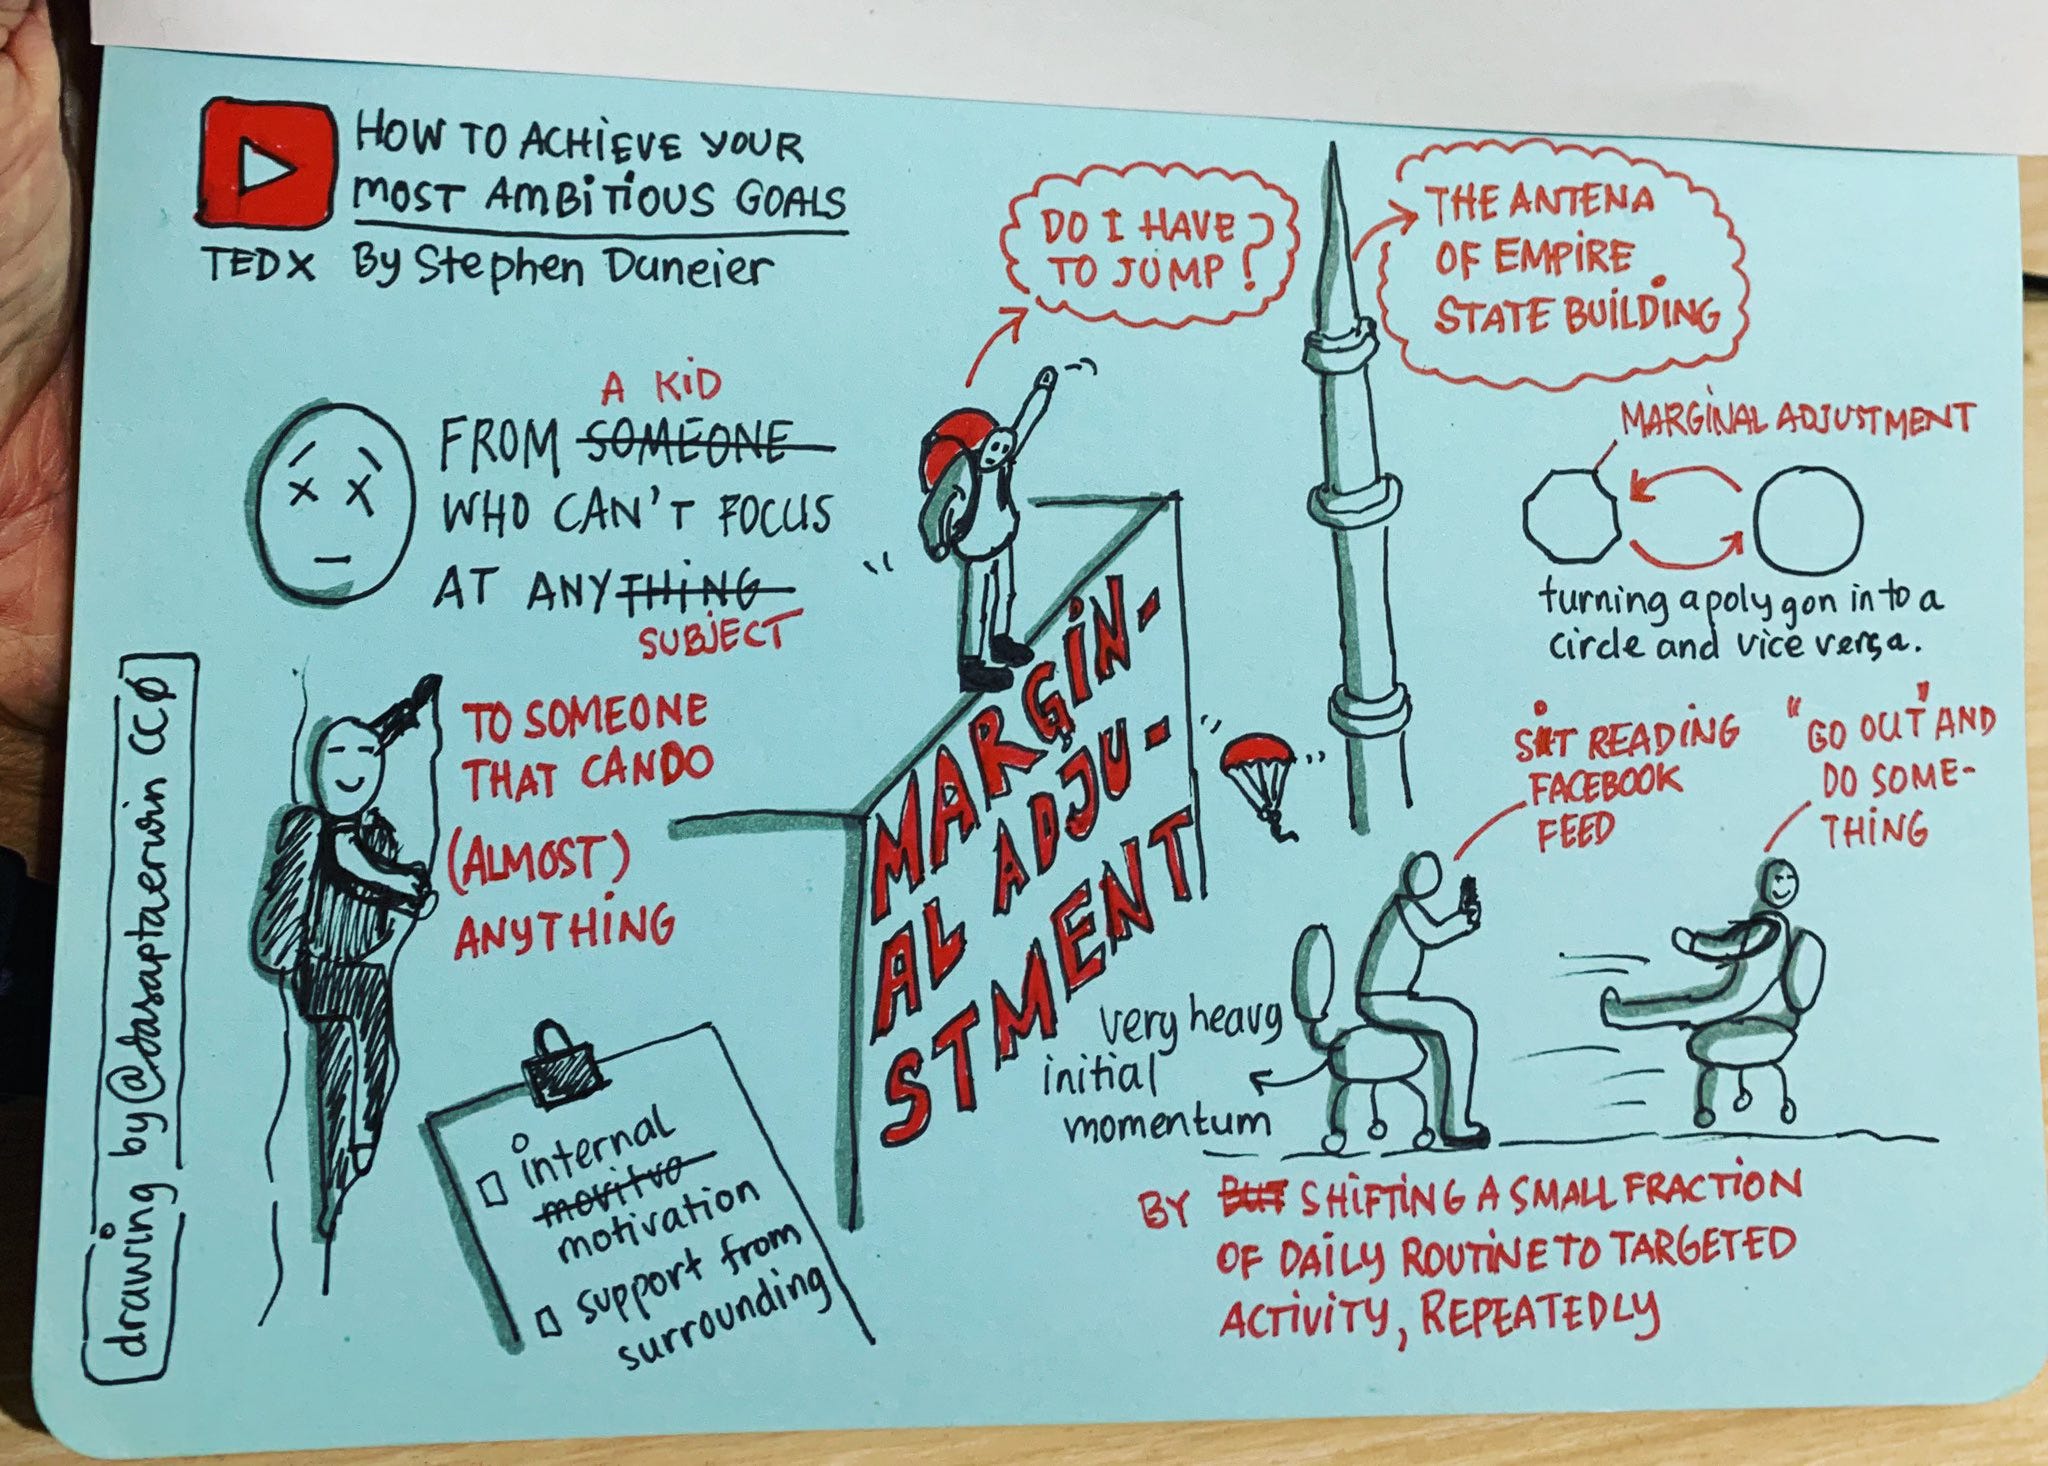 HOW TO ACHIEVE YOUR
MOST AMBITIOUS GOALS
TEDX By Stephen Duneier
DO I HAVE
TO JUMP?
THE ANTENA
OF EMPIRE
STATE BUILDING
A KID
FROM SOMEONE
WHO CAN'T FOCUS
AT ANYTHING
SUBJECT
TO SOMEONE
THAT CAN DO
(ALMOST)
ANYTHING
MARGIN-
AL ADJU-
STMENT
MARGINAL ADJUSTMENT
turning a polygon into a
circle and vice versa.
SIT READING
FACEBOOK
FEED
"GO OUT" AND
DO SOME-
THING
very heavy
initial
momentum
internal
movitvo
motivation
support from
surrounding
BY BUT SHIFTING A SMALL FRACTION
OF DAILY ROUTINE TO TARGETED
ACTIVITY, REPEATEDLY
drawing by @dasaptaerwin CCØ